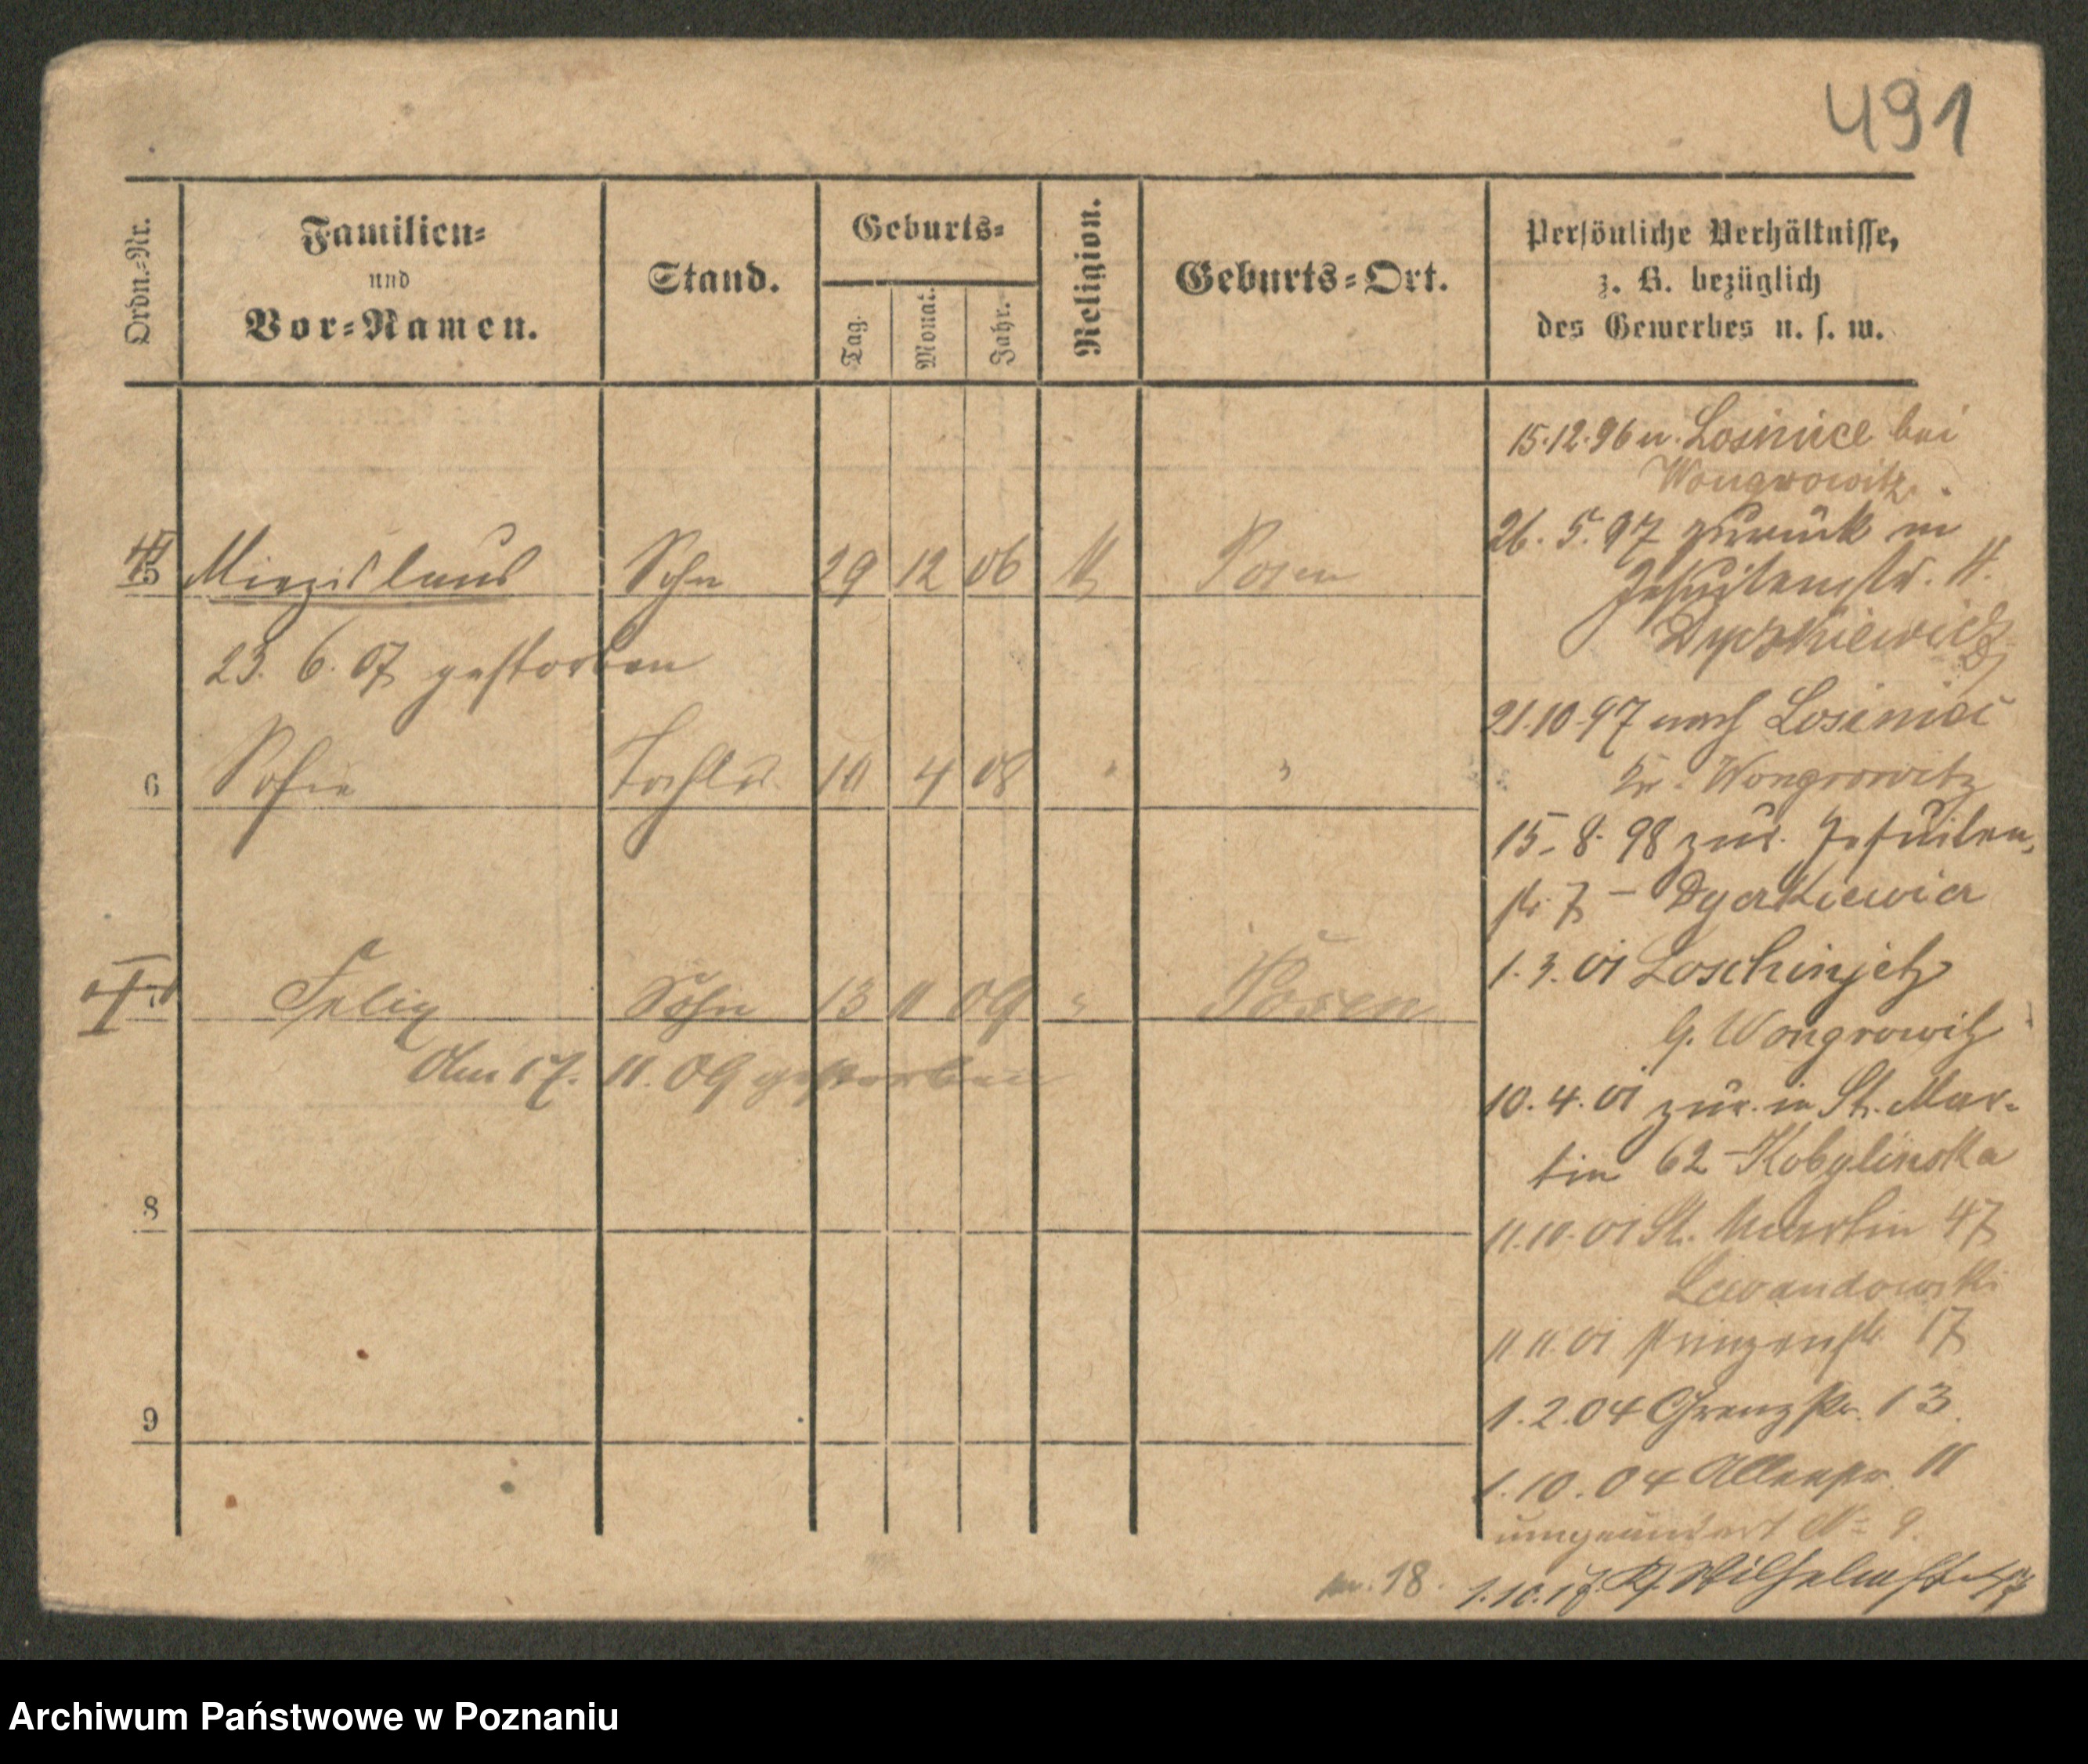 491
Ordn.-Nr.
Familien-
und
Vor-Namen.
Stand.
Geburts-
Tag.
Monat.
Jahr.
Religion.
Geburts-Ort.
Persönliche Verhältnisse,
z. B. bezüglich
des Gewerbes u. s. w.
5 Miezislaus Sohn 29 12 06 Posen
23. 6. 07 gestorben
6 Sofie Tochter 10 4 08 " "
Felix Sohn 13 11 09 " Posen
Am 17. 11. 09 gestorben
8
9
15.12.96 n. Losinice bei
Wongrowitz.
26. 5. 97 zurück in
Jesuitenstr. 11.
21.10.97 nach Losiniec
Kr. Wongrowitz
15. 8. 98 zur. Jesuiten-
str. 7 - Dyerkiewicz
1. 3. 01 Loschinjetz
G. Wongrowitz
10. 4. 01 zür. in St. Mar-
tin 62 Kobylinska
11.10.01 St. Martin 47
Lewandowski
11.11.01 Prinzenstr. 17
1.2.04 Grenzstr. 13.
1.10.04 Allerstr. 11
umgeändert No 9.
18. 1.10.17. Wilhelmstr.
Archiwum Państwowe w Poznaniu